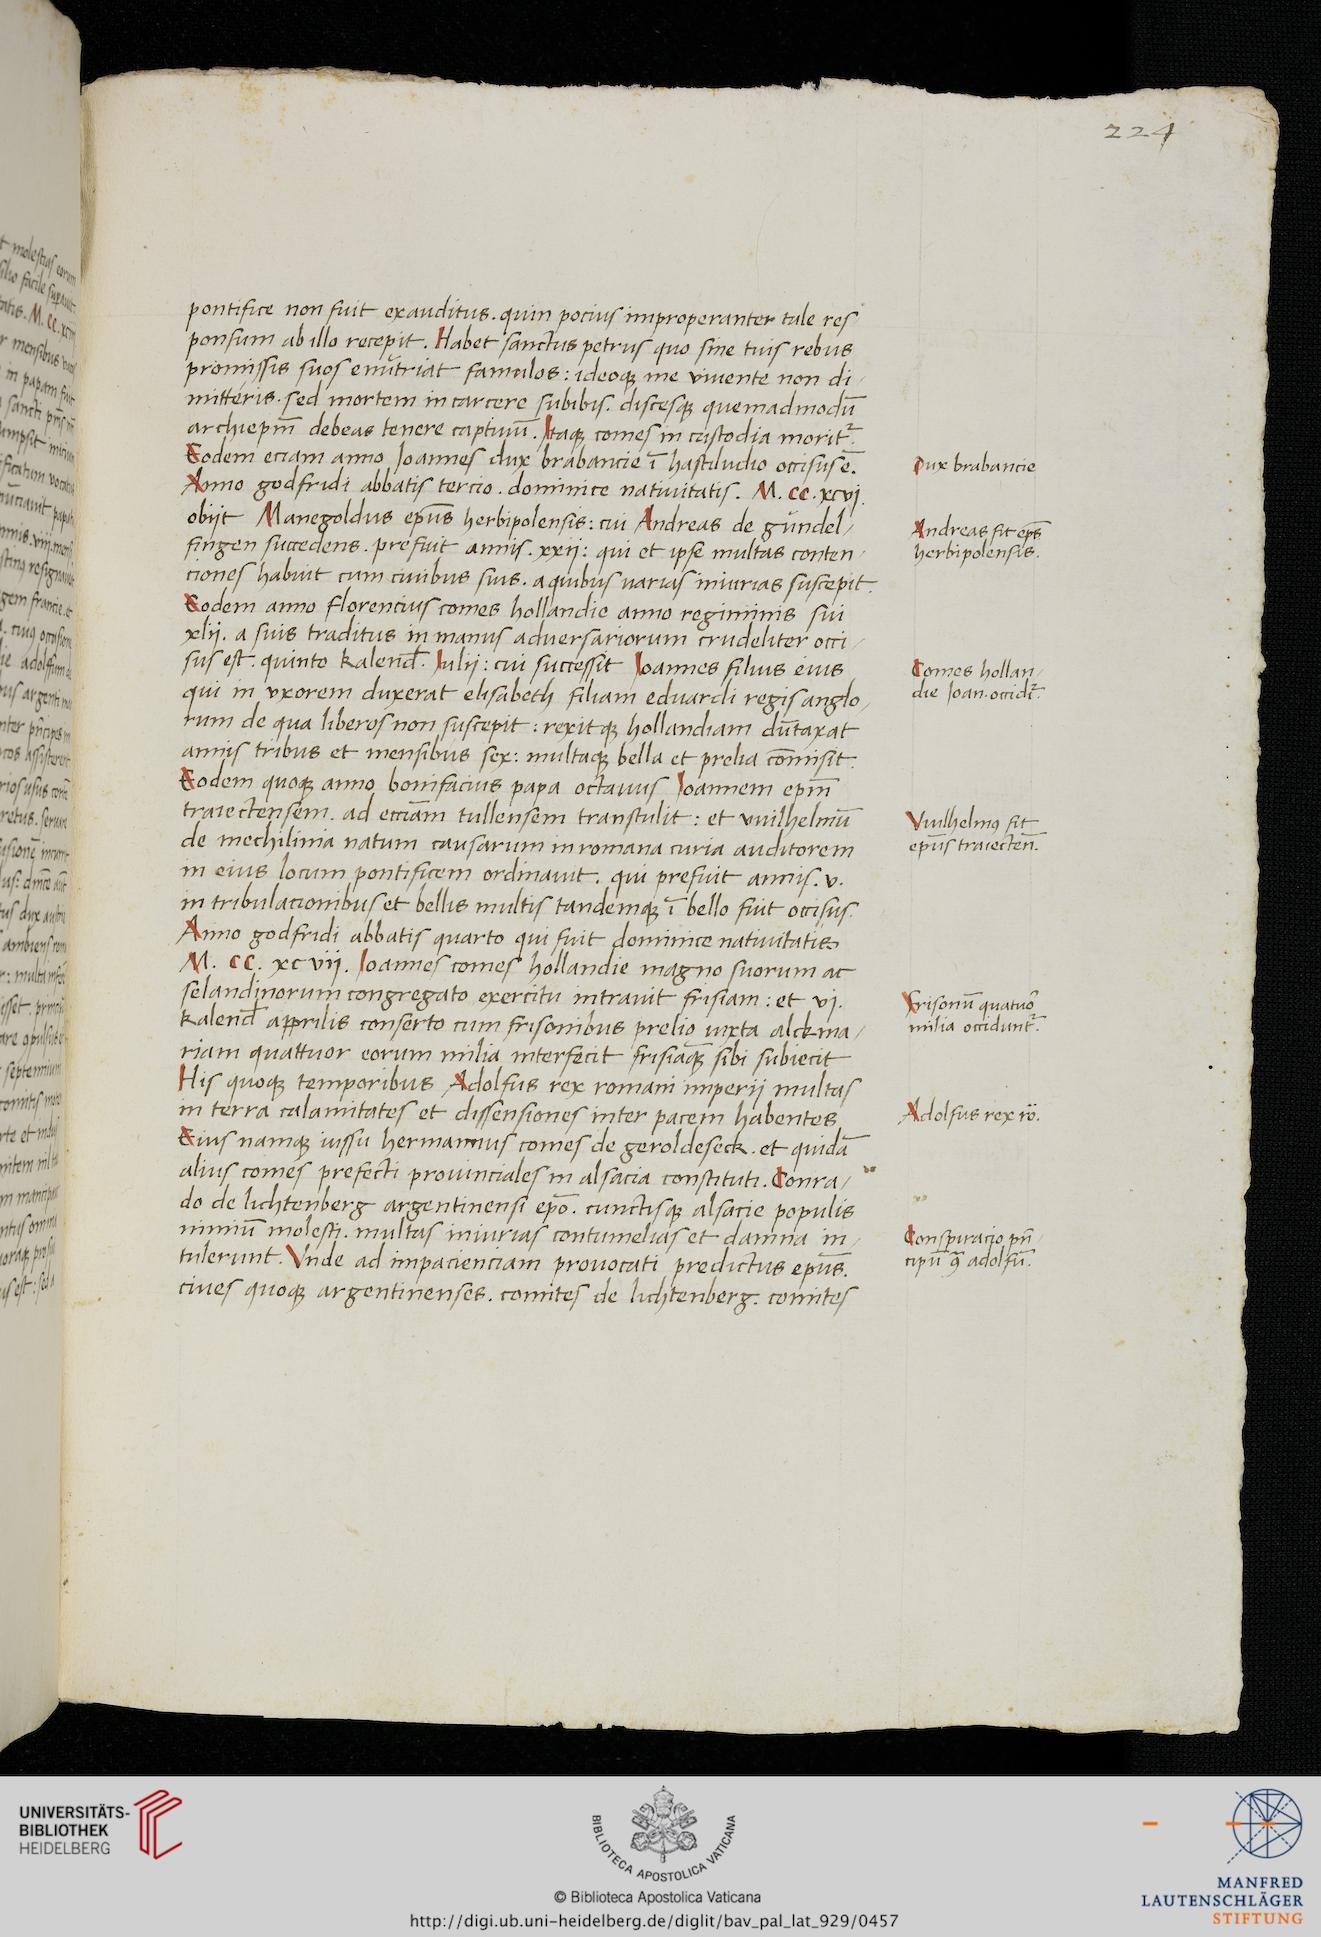 224
pontifice non fuit exauditus. quin pocius improperanter tale res
ponsum ab illo recepit. Habet sanctus petrus quo sine tuis rebus
promissis suos enutriat famulos: ideoq me vivente non di-
mitteris. sed mortem in carcere subibis. discesq quemadmodū
archiepm̄ debeas tenere captiuū. Itaq comes in custodia morit.
Eodem eciam anno Joannes dux brabancie ī hastiludio occisus ē.
Dux brabancie
Anno godfridi abbatis tercio. dominice nativitatis. M. cc. xcvi.
obijt Manegoldus ep̄us herbipolensis: cui Andreas de gündel-
Andreas fit ep̄s
herbipolensis.
fingen succedens. prefuit annis. xxij: qui et ipse multas conten-
ciones habuit cum ciuibus suis. a quibus varias iniurias suscepit.
Eodem anno florencius comes hollandie anno regiminis sui
xlij. a suis traditus in manus adversariorum crudeliter occi-
sus est. quinto kalend. Julij: cui successit Joannes filius eius
Comes hollan-
die Joan. occidit.
qui in vxorem duxerat elisabeth filiam eduardi regis anglo-
rum de qua liberos non suscepit: rexitq hollandiam dūtaxat
annis tribus et mensibus sex: multaq bella et prelia cōmisit.
Eodem quoq anno bonifacius papa octauus Joannem epm̄
traiectensem. ad ecciam tullensem transtulit: et vvilhelmū
Vvilhelmus fit
ep̄us traiecten̄.
de mechilinia natum causarum in romana curia auditorem
in eius locum pontificem ordinauit. qui prefuit annis. v.
in tribulacionibus et bellis multis tandemq ī bello fuit occisus.
Anno godfridi abbatis quarto qui fuit dominice nativitatis
M. CC. xcvij. Joannes comes hollandie magno suorum ac
selandinorum congregato exercitu intrauit frisiam: et vi.
Frisonū quatuor
milia occidunt.
kalend apprilis conserto cum frisonibus prelio iuxta alckma-
riam quattuor eorum milia interfecit frisiāq sibi subiecit
His quoq temporibus Adolfus rex romani imperij multas
in terra calamitates et dissensiones inter pacem habentes
Adolfus rex ro.
Eius namq iussu hermannus comes de geroldeseck. et quidā
alius comes prefecti prouinciales in alsacia constituti. Conra-
do de lichtenberg argentinensi ep̄o. cunctisq alsacie populis
nimiū molesti. multas iniurias contumelias et damna in-
Conspiracio pn̄
cipū 9̄ adolfū.
tulerunt. Vnde ad impacienciam prouocati predictus ep̄us.
ciues quoq argentinenses. comites de lichtenberg. comites
UNIVERSITÄTS-
BIBLIOTHEK
HEIDELBERG
BIBLIOTECA APOSTOLICA VATICANA
© Biblioteca Apostolica Vaticana
http://digi.ub.uni-heidelberg.de/diglit/bav_pal_lat_929/0457
MANFRED
LAUTENSCHLÄGER
STIFTUNG